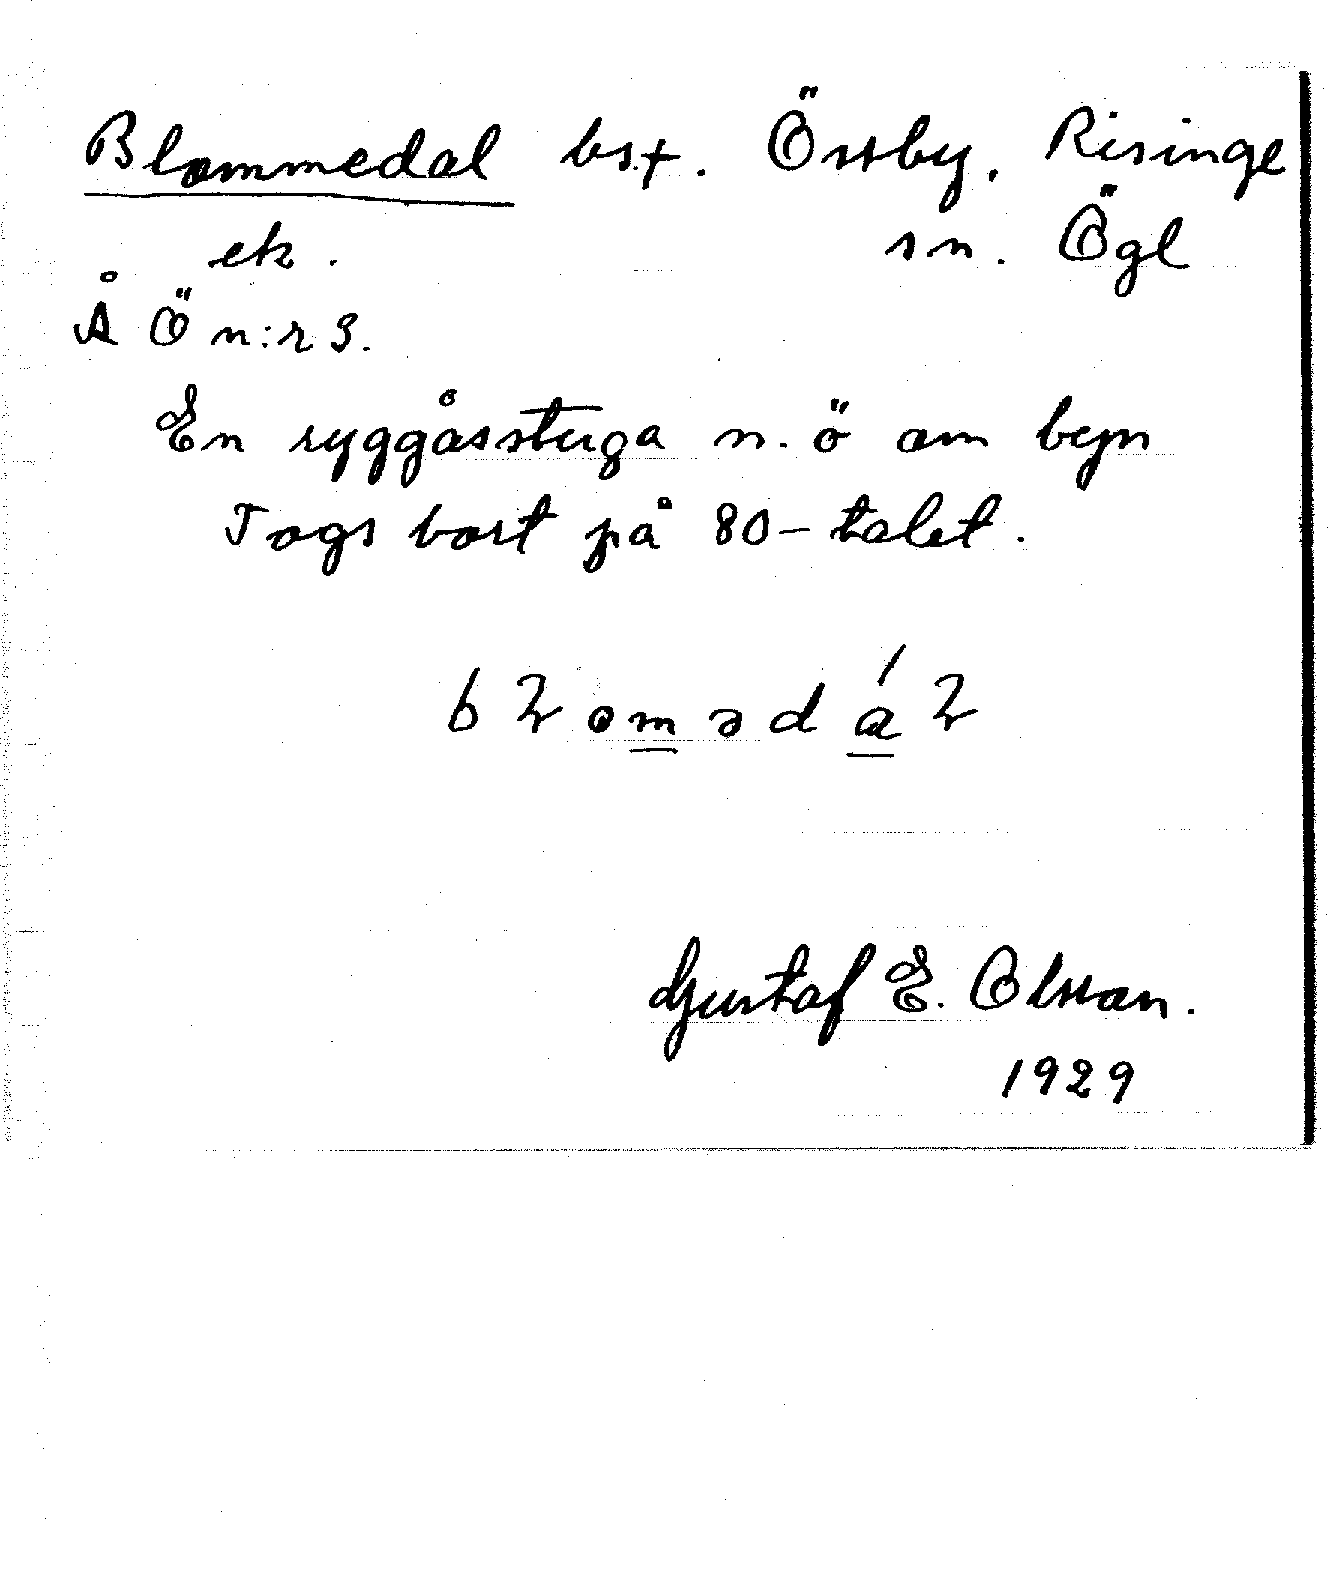 Blommedal bst. Össby, Risinge
ek. sn. Ögl
Å Ö n:r 3.
En ryggåsstuga n.ö om byn
Togs bort på 80-talet.
bƖomədáƖ
Gustaf E. Olsson.
1929